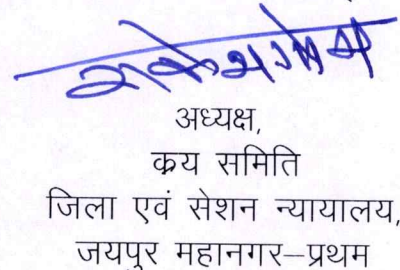 अध्यक्ष,
क्रय समिति
जिला एवं सेशन न्यायालय,
जयपुर महानगर–प्रथम